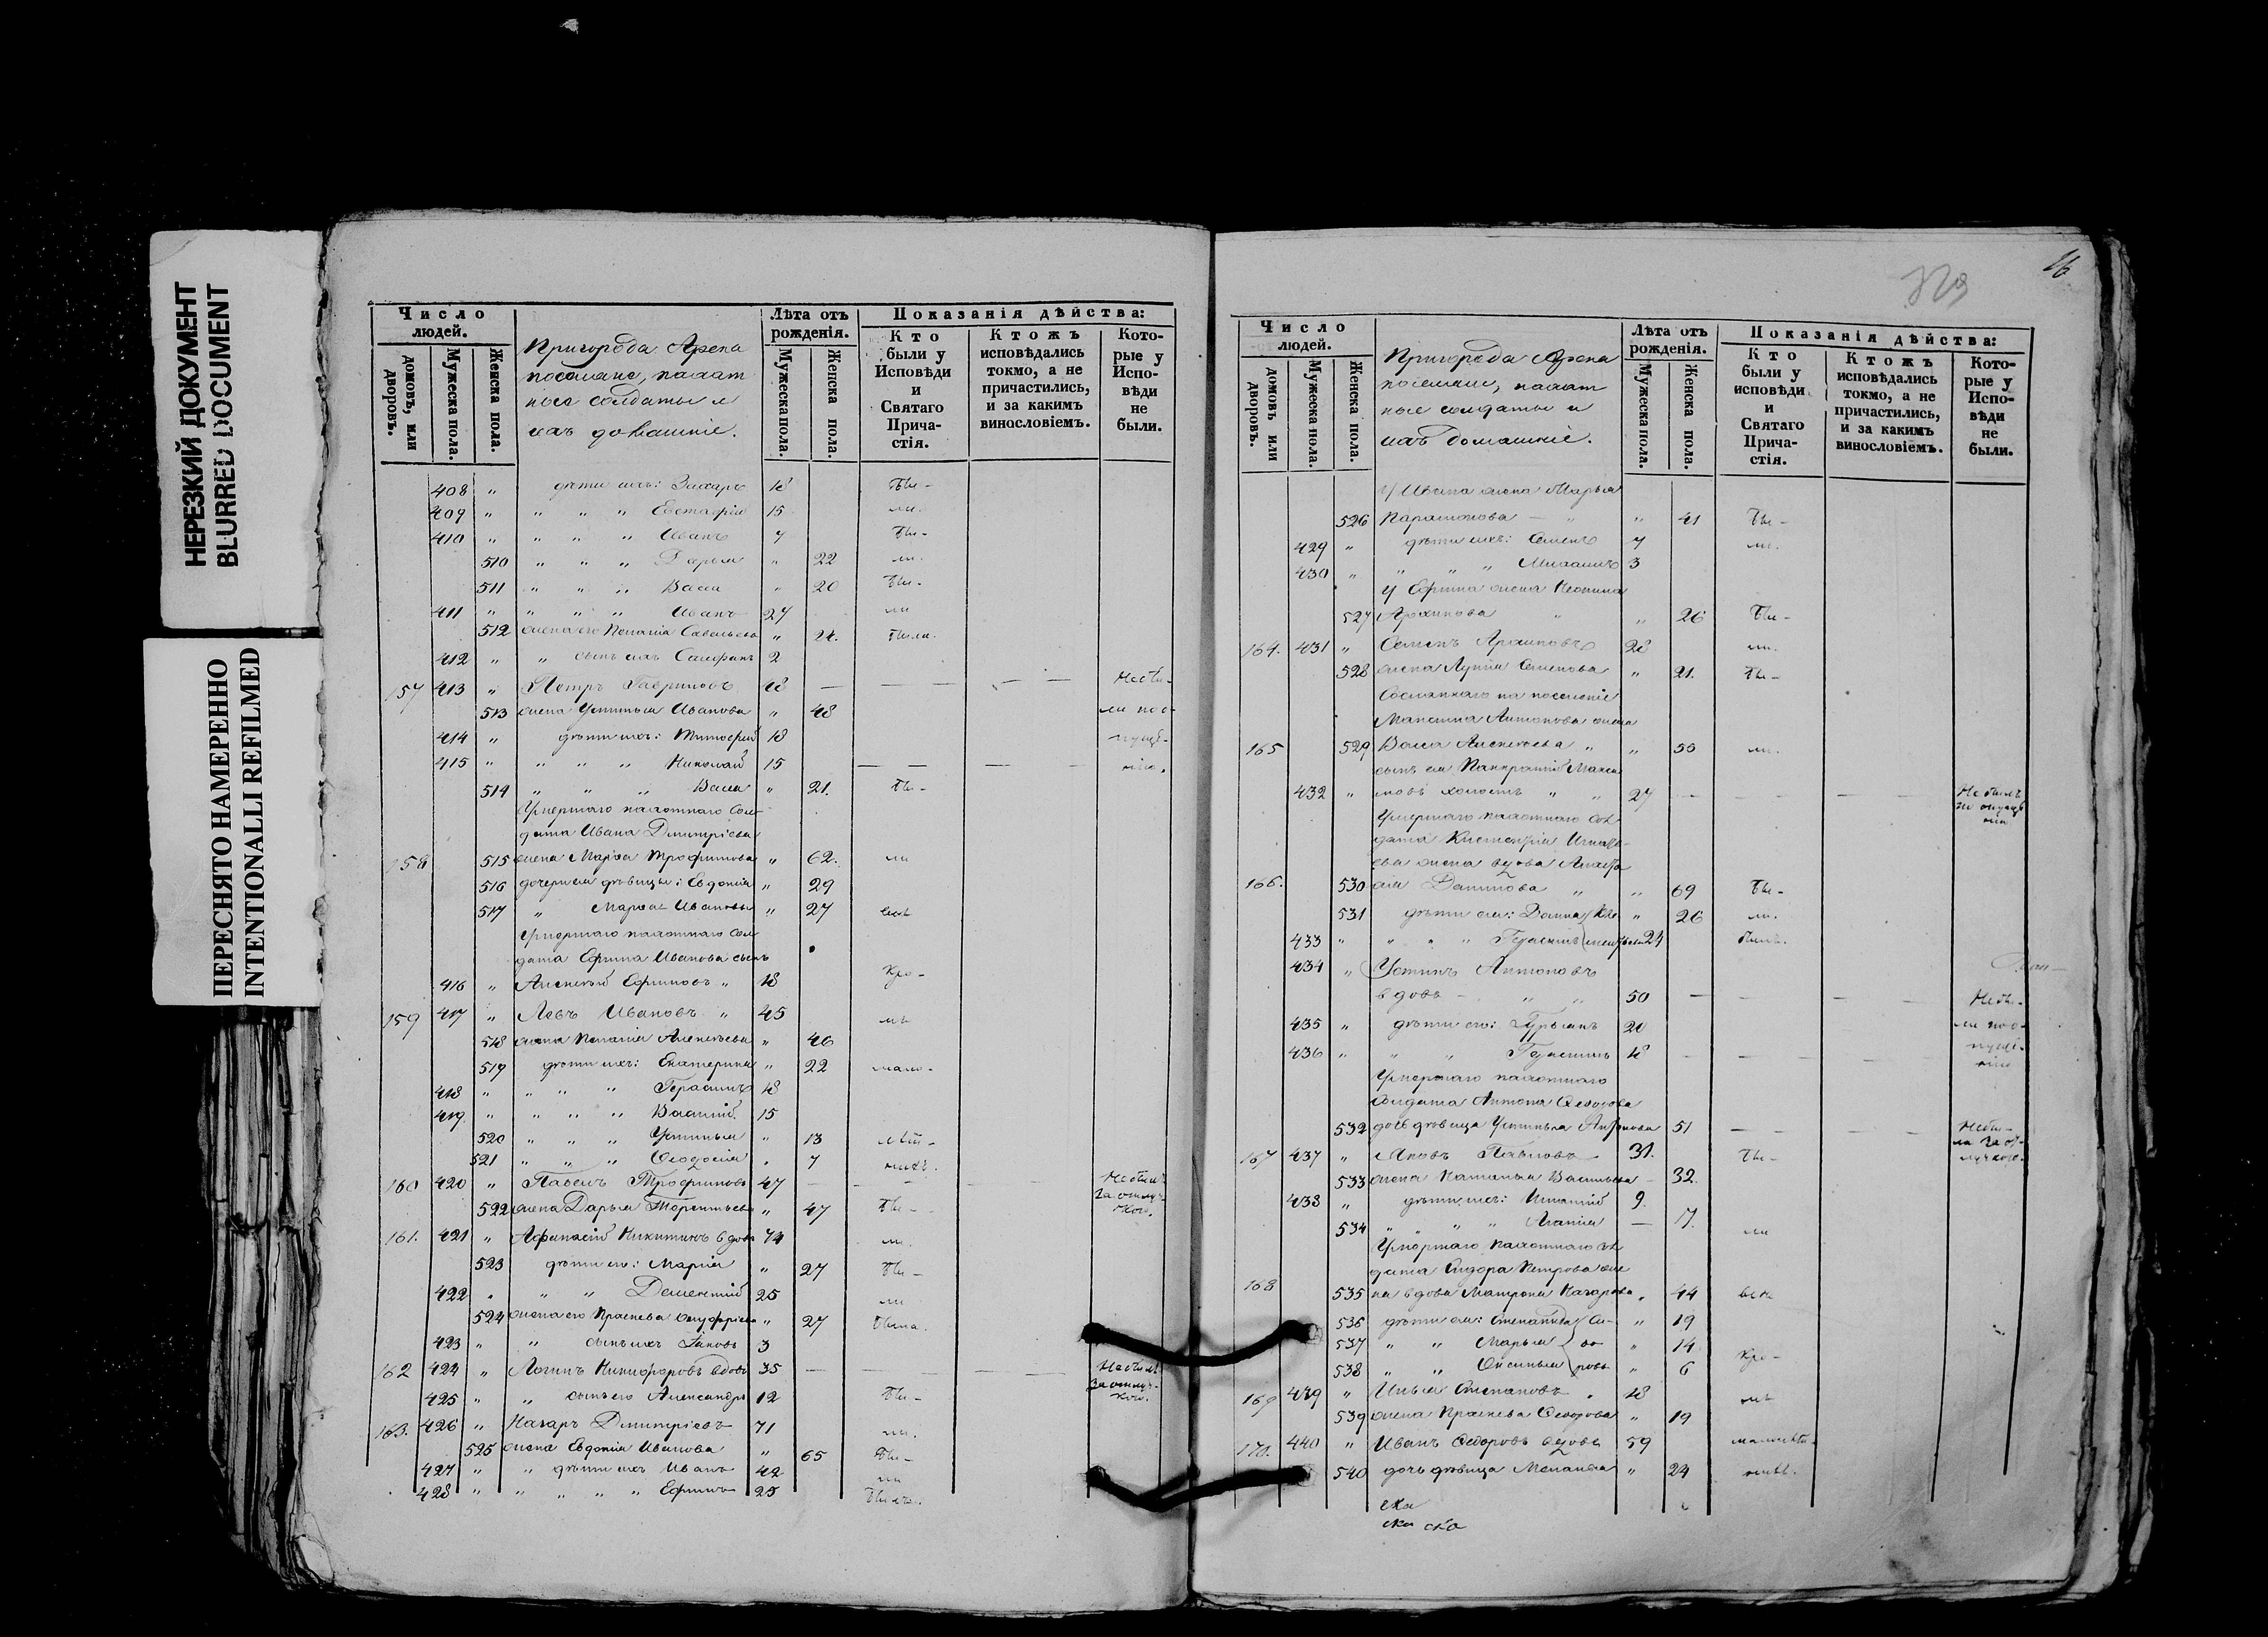 НЕРЕЗКИЙ ДОКУМЕНТ
BLURRED DOCUMENT
ПЕРЕСНЯТО НАМЕРЕННО
INTENTIONALLI REFILMED
Число людей.
домовъ, или дворовъ.
Мужеска пола.
Женска пола.
Пригорода Арска
пахат
ные солдаты и
ихъ домашніе.
Лѣта отъ рожденія.
Мужеска пола.
Женска пола.
Показанія дѣйства:
Кто были у Исповѣди и Святаго Прича-стія.
Ктожъ исповѣдались токмо, а не причастились, и за какимъ винословіемъ.
Кото-рые у Испо-вѣди не были.
408 " дѣти ихъ: Захаръ 18 Бы-
409 " " " " Евстафій 15 ли.
410 " " " " Иванъ 7 Бы-
510 " " " Дарья " 22 ли.
511 " " " Васса " 20 Бы-
411 " " " " Иванъ 27 ли
512 жена его Савельева " 24. была.
412 " " сынъ ихъ 2
157 413 " Петръ Гавриловъ 48 — — — — — Небы-
513 жена Устинья Иванова " 48 ли по о-
414 " дѣти ихъ: Тимофей 18 пуще-
415 " " " " Николай 15 — — — — нію.
514 " " " Васса " 21. Бы-
Умершаго пахотнаго сол-
дата Ивана Димитріева
158 515 жена Марѳа Трофимова " 62. ли
516 дочери ея дѣвицы: Евдокія " 29
517 " Марѳа Ивановы " 27 всѣ
Умершаго пахотнаго сол-
дата Ефима Иванова сынъ
416 " Алексѣй Ефимовъ " 18 Кро-
159 417 " Левъ Ивановъ " 45 мѣ
518 жена Алексѣева " 46
519 дѣти ихъ: Екатерина " 22 мало-
418 " " " " Герасимъ 18
419 " " " " Василій 15
520 " " " Устинья " 13 лѣт-
521 " " " Ѳеодосія " 7 нихъ.
160 420 " Павелъ Трофимовъ 47 — — — — Небылъ
за отлуч-
522 жена Дарья Терентьева " 47 Бы- кою.
161. 421 " Афанасій Никитинъ вдовъ 74 ли.
523 дѣти его: Марія " 27 Бы-
422 " " " Дементій 25 ли
524 жена его Прасковья Онуфріева " 27 была.
423 " " сынъ ихъ Іаковъ 3
162 424 " Логинъ Никифоровъ вдовъ 35 — — — — Небылъ
за отлуч-
425 " " сынъ его Александръ 12 Бы- кою.
163. 426 " Назаръ Димитріевъ 71 ли.
525 жена Евдокія Иванова " 65 Бы-
427 " " дѣти ихъ Иванъ 42 ли
428 " " " " " Ефимъ 25 Былъ.
16
329
Число людей.
домовъ или дворовъ.
Мужеска пола.
Женска пола.
Пригорода Арска
пахат
ные солдаты и
ихъ домашніе.
Лѣта отъ рожденія.
Мужеска пола.
Женска пола.
Показанія дѣйства:
Кто были у исповѣди и Святаго Прича-стія.
Ктожъ исповѣдались токмо, а не причастились, и за какимъ винословіемъ.
Кото-рые у Испо-вѣди не были.
У Ивана жена Марья
526 Парамонова — " " 41 Бы-
429 " дѣти ихъ: Семенъ 7 ли.
430 " " " " Михаилъ 3
У Ефима жена
527 Архипова " " 26 Бы-
164. 431 " Семенъ Архиповъ 28 ли.
528 жена Семенова " 21. Бы-
Сосланнаго на поселеніе
Максима Антонова жена
165 529 Васса Алексѣева " " 50 ли.
сынъ ея Панкратій Макси
432 " мовъ холостъ " " 27 — — — — Небылъ
по опуще
нію
Умершаго пахотнаго сол
дата
жена вдова Анаста
166. 530 сія Данилова " " 69 Бы-
531 дѣти ея: " 26 ли.
433 " " " " Герасимъ 24 былъ.
434 " Устинъ Антоновъ
вдовъ — " " 50 — — — — Небы-
435 " дѣти его: Гурьянъ 20 ли по о-
436 " " " Герасимъ 18 — — — — пуще-
нію
Умершаго пахотнаго
солдата Антона Ѳедорова
532 дочь дѣвица Устинья Антонова 51 — — — — Небы-
ла за от-
167 437 " Яковъ Павловъ 31. Бы- лучкою.
533 жена Наталья Васильева — 32.
438 " дѣти ихъ: Игнатій 9.
534 " " " " Агапія — 17. ли
Умершаго пахотнаго сол
дата Сидора Петрова же
168 535 на вдова Матрона Назарова " 44 всѣ
536 дѣти ея: Степанида Си- " 19
537 " " Марья до " 14
538 " " Оксинья ровы " 6 Кро-
169 439 " Илья Степановъ " 18 мѣ
539 жена Прасковья Ѳедорова " 19
170. 440 " Иванъ Ѳедоровъ вдовъ 59 малолѣт-
540 дочь дѣвица Меланья " 24 нихъ.
ска
ска ска